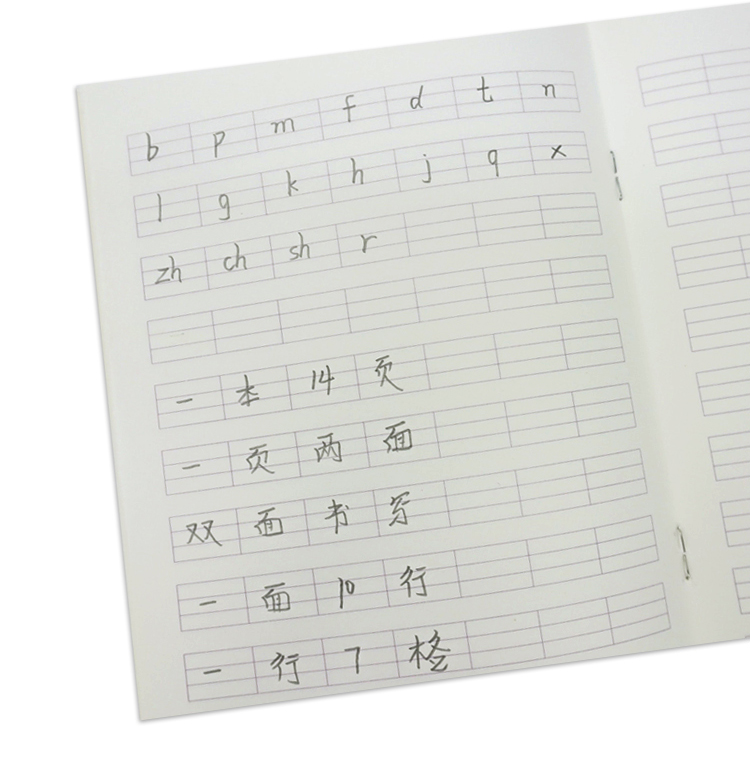 b p m f d t n
l g k h j q x
zh ch sh r
一本14页
一页两面
双面书写
一面10行
一行7格